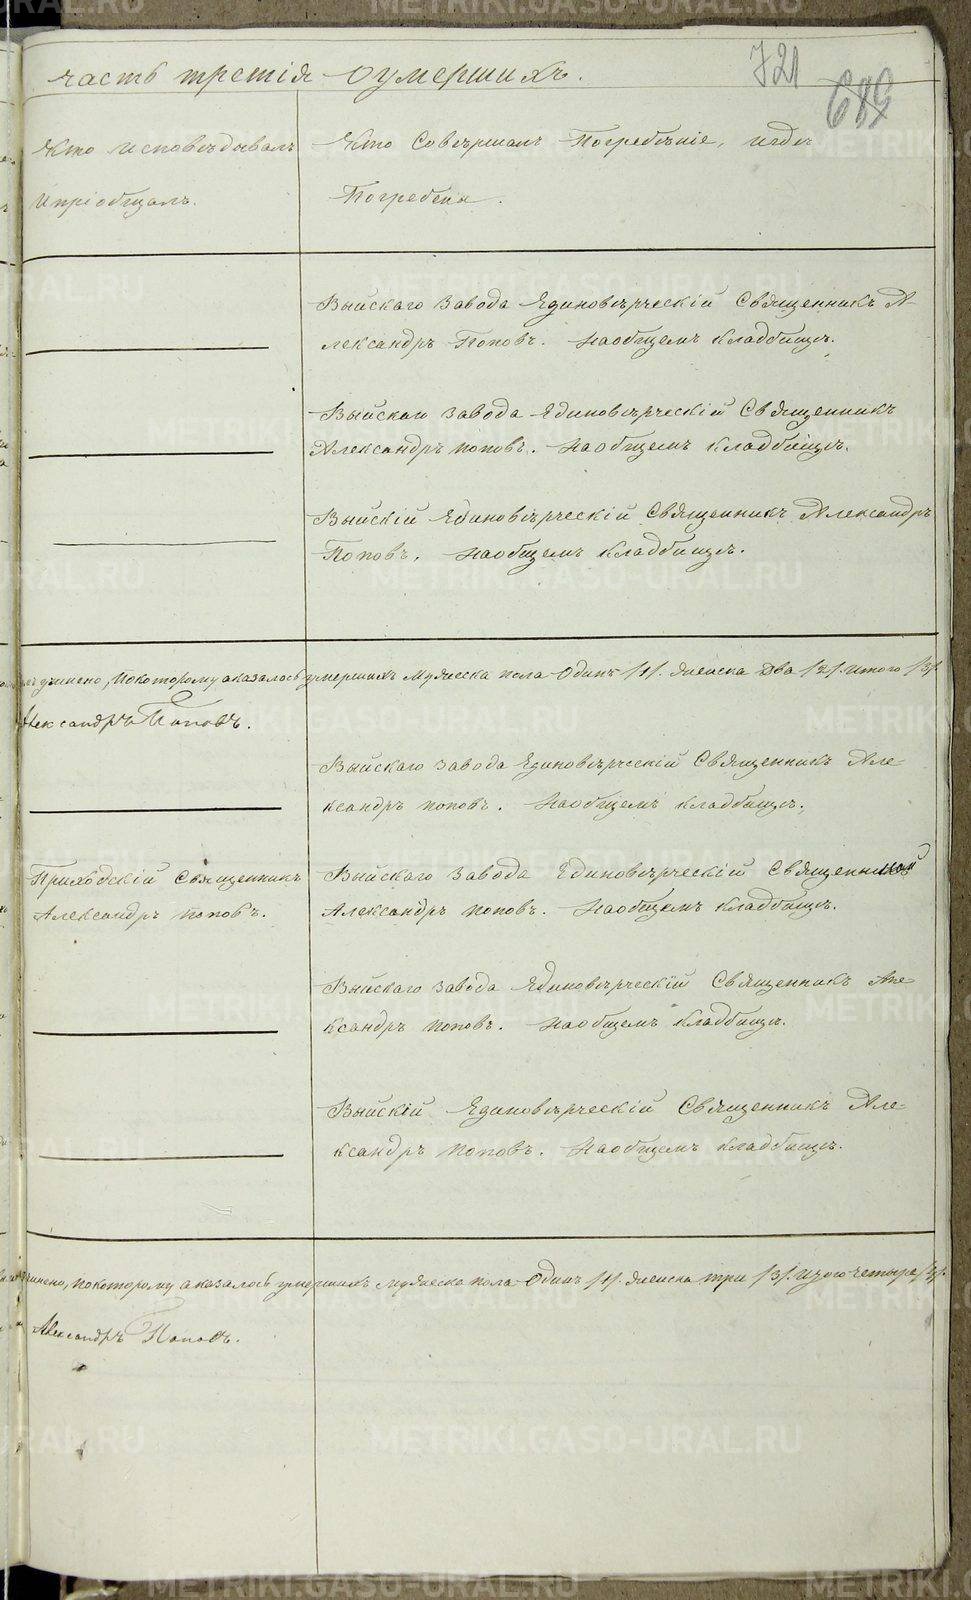 часть третія оумершихъ.
721
689
Кто исповѣдывалъ
Ипріобщалъ.
Кто Совершалъ Погребѣніе, игдѣ
Погребены.
Выйскаго Завода Единовѣрческій Священникъ А-
лександръ Поповъ. Наобщемъ Кладбищѣ.
Выйскаго Завода Единовѣрческій Священникъ
Александръ Поповъ. Наобщемъ Кладбищѣ.
Выйскій Единовѣрческій Священникъ Александръ
Поповъ. Наобщемъ Кладбищѣ.
учинено, Покоторому аказалось умершихъ Мужеска пола Одинъ /1/. Женска Два /2/. итого /3/.
Александръ Поповъ.
Выйскаго Завода Единовѣрческій Священникъ Але-
ксандръ Поповъ. Наобщемъ Кладбищѣ.
Приходскій Священникъ
Александръ Поповъ.
Выйскаго Завода Единовѣрческій
Александръ Поповъ. Наобщемъ Кладбищѣ.
Выйскаго Завода Единовѣрческій Священникъ Але-
ксандръ Поповъ. Наобщемъ Кладбищѣ.
Выйскій Единовѣрческій Священникъ Але-
ксандръ Поповъ. Наобщемъ Кладбищѣ.
покоторому аказалось умершихъ Мужеска пола Одинъ /1/. Женска три /3/. Итого четыре /4/.
Александръ Поповъ.
METRIKI.GASO-URAL.RU